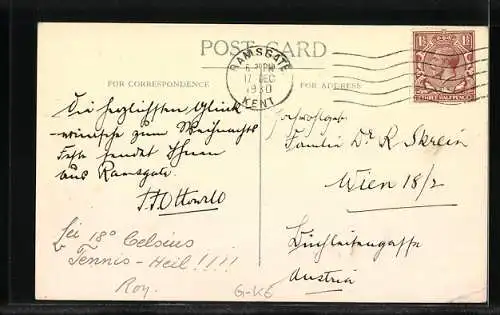 POST CARD
RAMSGATE
17 DEC
1930
KENT
FOR CORRESPONDENCE
FOR ADDRESS
Die herzlichsten Glück-
wünsche zum Weihnachts
Feste sendet Ihnen
aus Ramsgate
bei 18° Celsius
Tennis-Heil!!!!
Roy.
Hochwohlgeb.
Familie Dr R Skrein
Wien 18/2
Büchleitengasse
Austria
G-K6